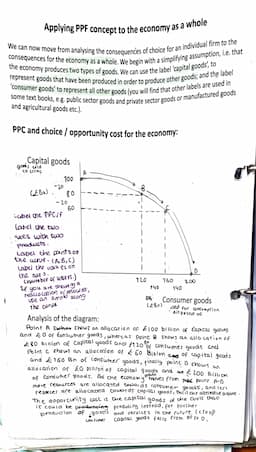 Applying PPF concept to the economy as a whole
We can now move from analysing the consequences of choice for an individual firm to the
consequences for the economy as a whole. We begin with a simplifying assumption, i.e. that
the economy produces two types of goods. We can use the label 'capital goods', to
represent goods that have been produced in order to produce other goods; and the label
'consumer goods' to represent all other goods (you will find that other labels are used in
some text books, e.g. public sector goods and private sector goods or manufactured goods
and agricultural goods etc.).
PPC and choice / opportunity cost for the economy:
Capital goods
goods used
100
A
-20
(£Bn) 80
B
-20
60
C
Label the PPC/F
Label the two
axes with two
products.
Label the points on
the curve - (A,B,C)
Label the values on
the axes
If you are showing a
reallocation of resources,
use an arrow along
the curve
D
120 160 200
+40 +40
Consumer goods
(£Bn) used for consumption
Analysis of the diagram:
Point A shows an allocation of £100 billion of capital goods
and £0 of consumer goods, whereas point B shows an allocation of
£80 billion of capital goods and £120 bn of consumer goods and
Point C shows an allocation of £60 Billion of capital goods
and £160 Bn of consumer goods, finally point D shows an
allocation of £0 billion of capital goods and £200 Billion
of consumer goods. As the economy moves from point A-D
more resources are allocated towards consumer goods, and less
resources are allocated towards capital goods.
The opportunity cost is the capital goods
it could be producing instead, for further
production of goods and services in the future.
capital goods from A to D.